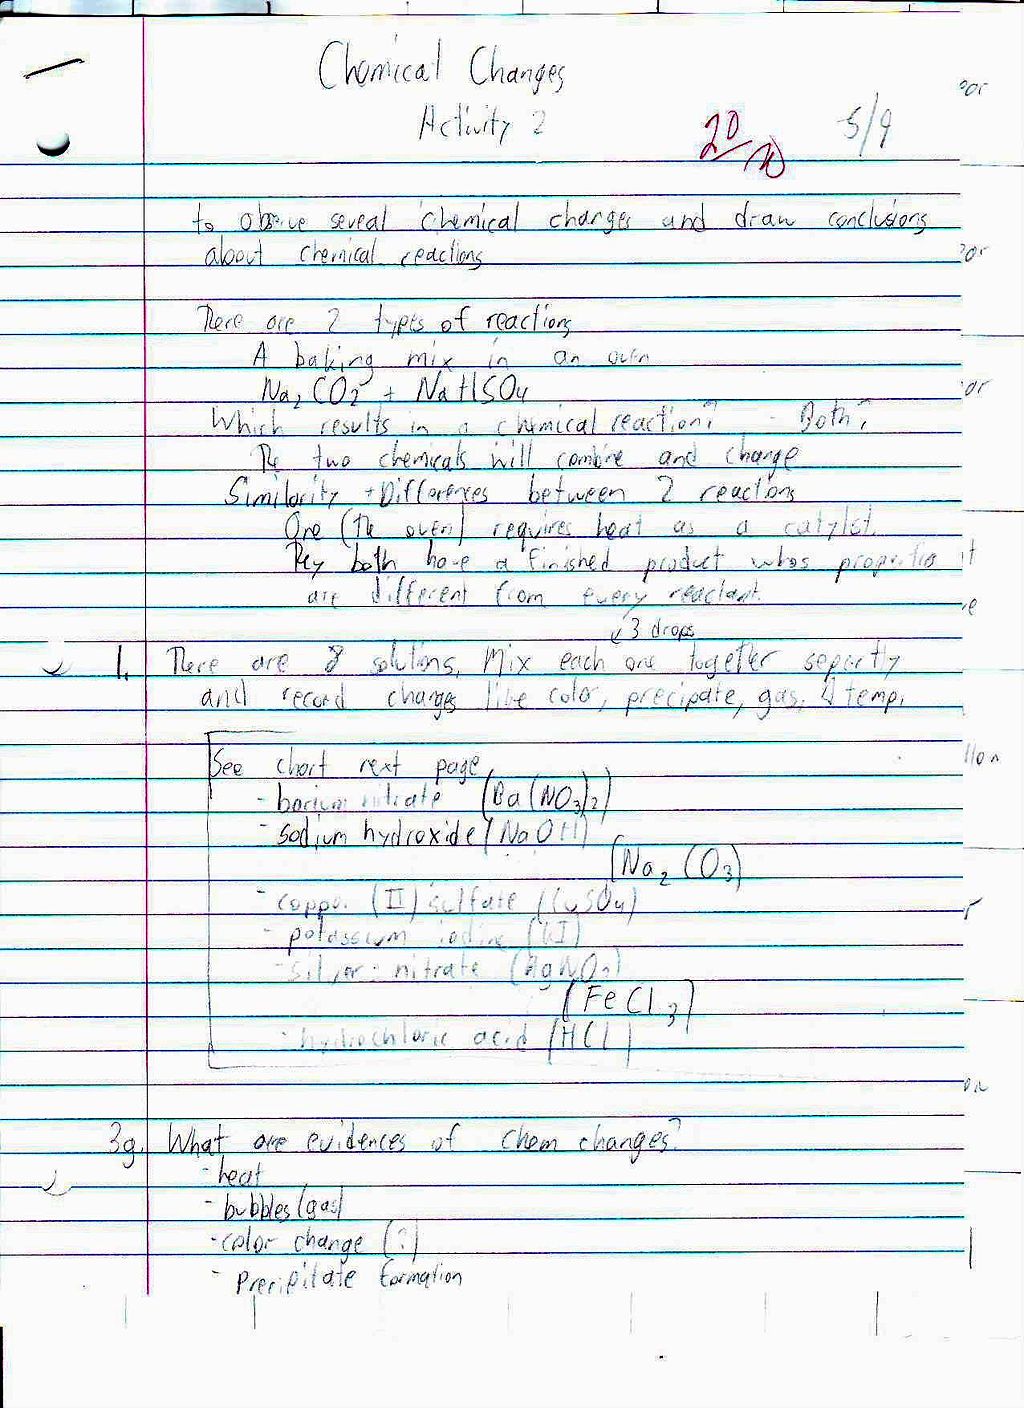 Chemical Changes
Activity 2
20/20
5/9
to observe several chemical changes and draw conclusions
about chemical reactions
There are 2 types of reactions
A baking mix in an oven
Na2CO2 + NaHSO4
Which results in a chemical reaction? - Both?
The two chemicals will combine and change
Similarity + Differences between 2 reactions
One (the oven) requires heat as a catylst.
They both have a finished product whos properties
are different from every reactant.
↙3 drops
1. There are 8 solutions. Mix each one together sepertly
and record changes like color, precipate, gas, Δ temp.
See chart next page
- barium nitrate (Ba(NO3)2)
- sodium hydroxide (NaOH)
(Na2CO3)
- copper (II) sulfate (CuSO4)
- potassium iodine (KI)
- silver nitrate (AgNO3)
(FeCl3)
- hydrochloric acid (HCl)
3g. What are evidences of chem changes?
- heat
- bubbles (gas)
- color change (?)
- Precipitate formation